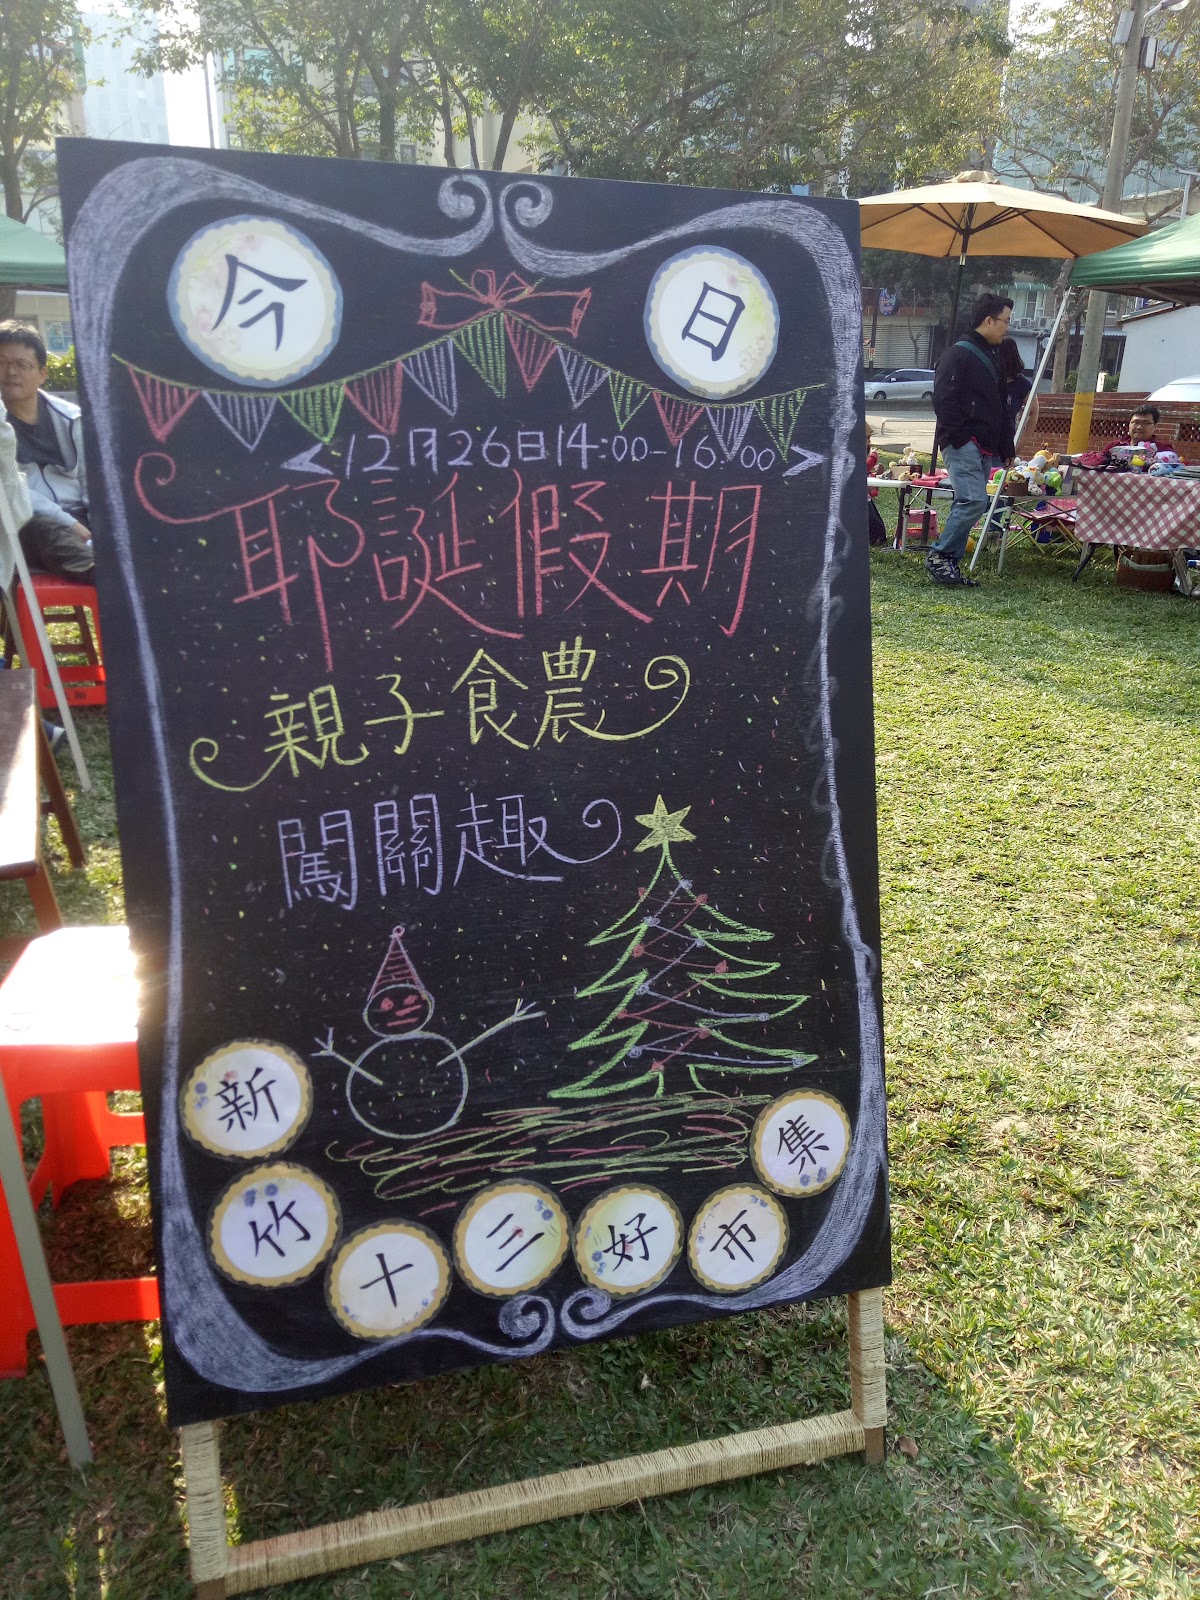 今日
<12月26日14:00-16:00>
耶誕假期
親子食農
闖關趣
新竹十三好市集